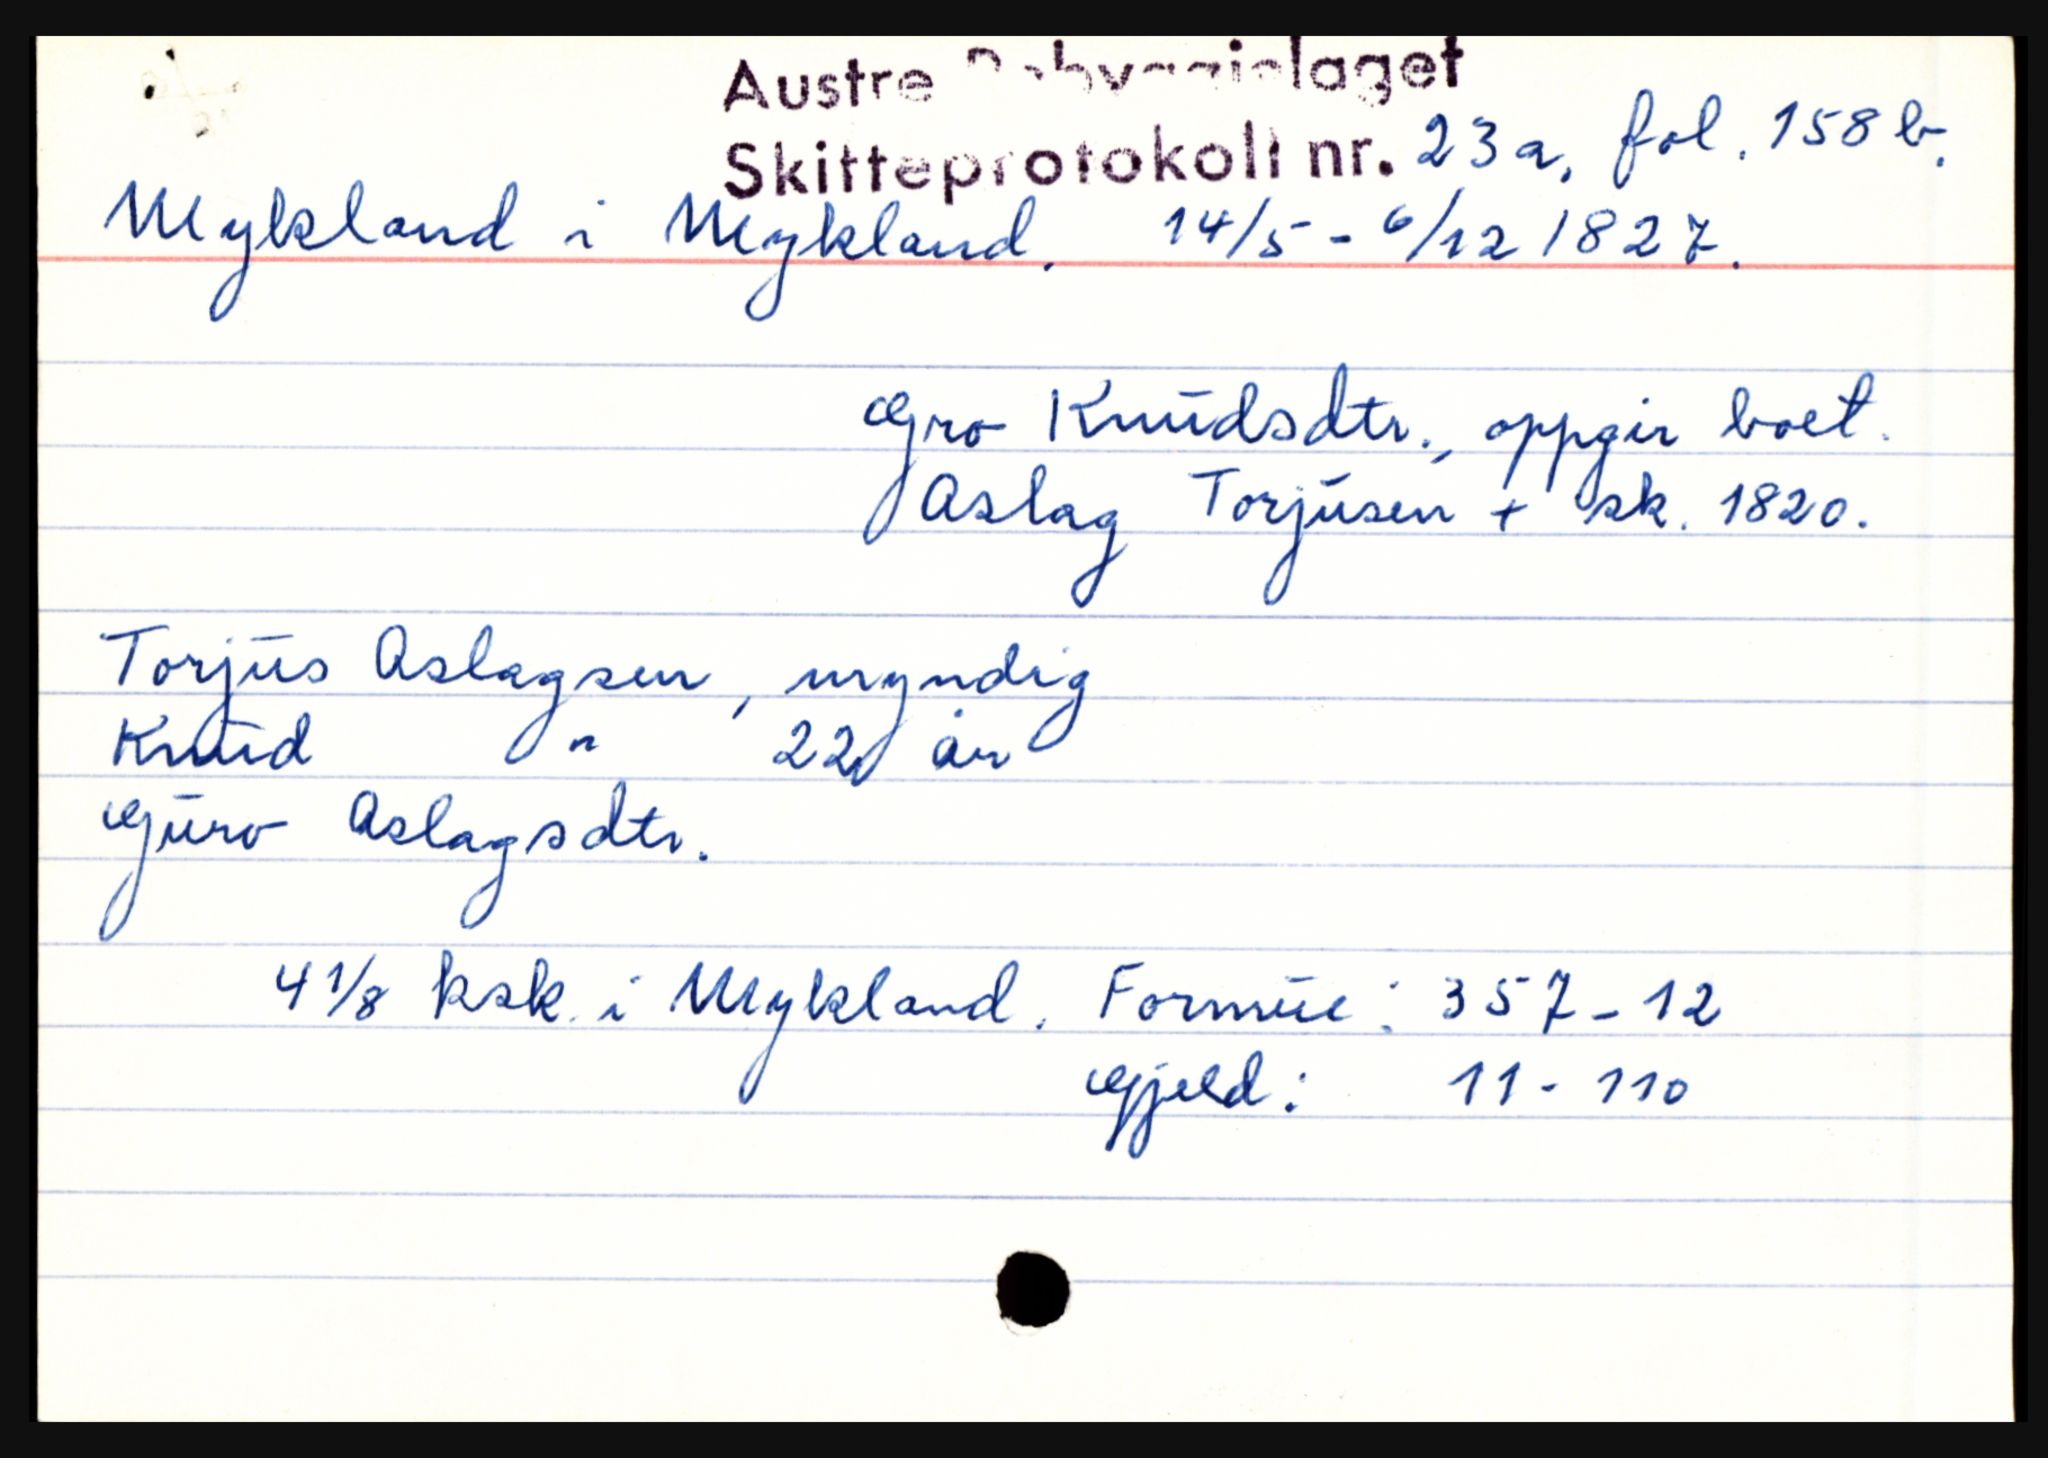 Austre Robyggjelaget
Skifteprotokoll nr. 23a, fol. 158 b.
Mykland i Mykland. 14/5 - 6/12 1827.
Gro Knudsdtr., oppgir boet.
Aslag Torjusen + sk. 1820.
Torjus Aslagsen, myndig
Knud " 22 år
Guro Aslagsdtr.
4 1/8 ksk. i Mykland. Formue: 357-12
Gjeld: 11-110